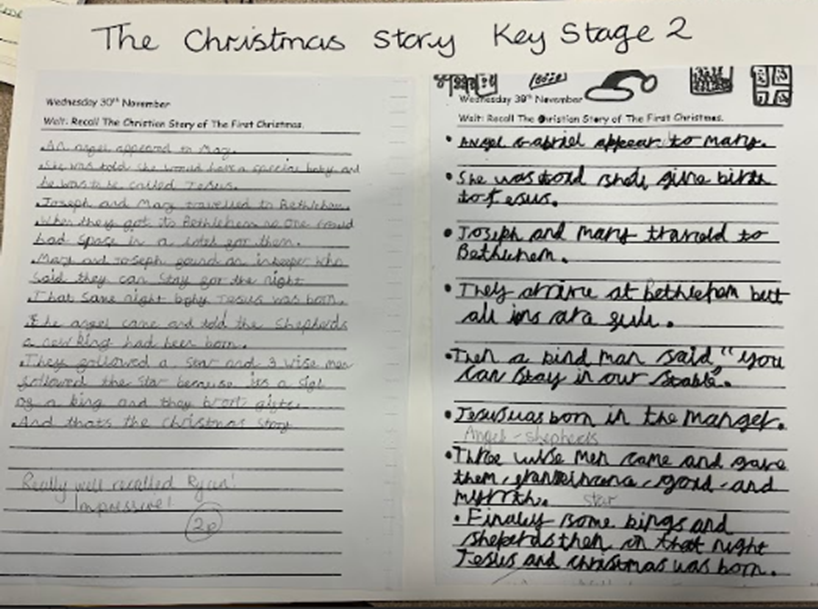 The Christmas story Key Stage 2
Wednesday 30th November
Walt: Recall The Christian Story of The First Christmas.
.An angel appeared to Mary.
.She was told she would have a special baby and
he was to be called Jesus.
.Joseph and Mary travelled to Bethlehem.
.When they got to Bethlehem no one
had space in a for them.
.Mary and Joseph found an who
said they can stay for the night
.That same night baby Jesus was born.
.The angel came and told the Shepherds
a new king had been born.
.They followed a star and 3 wise men
followed the star because its a
of a king and they gifts.
.And thats the christmas story
Really well recalled Ryan!
Impressive!
2p
Wednesday 30th November
Walt: Recall The Christian Story of The First Christmas.
• Angel Gabriel appear to mary.
• She was told give birth
to Jesus.
• Joseph and mary to
Bethlehem.
• They at bethlehem but
all
• Then a kind man said "you
can stay in our stable".
• Jesus was born in the manger.
Angel - shepherds
• Three wise men came and gave
them, gold - and
star
• Finaley some kings and
then in that night
Jesus and christmas was born.